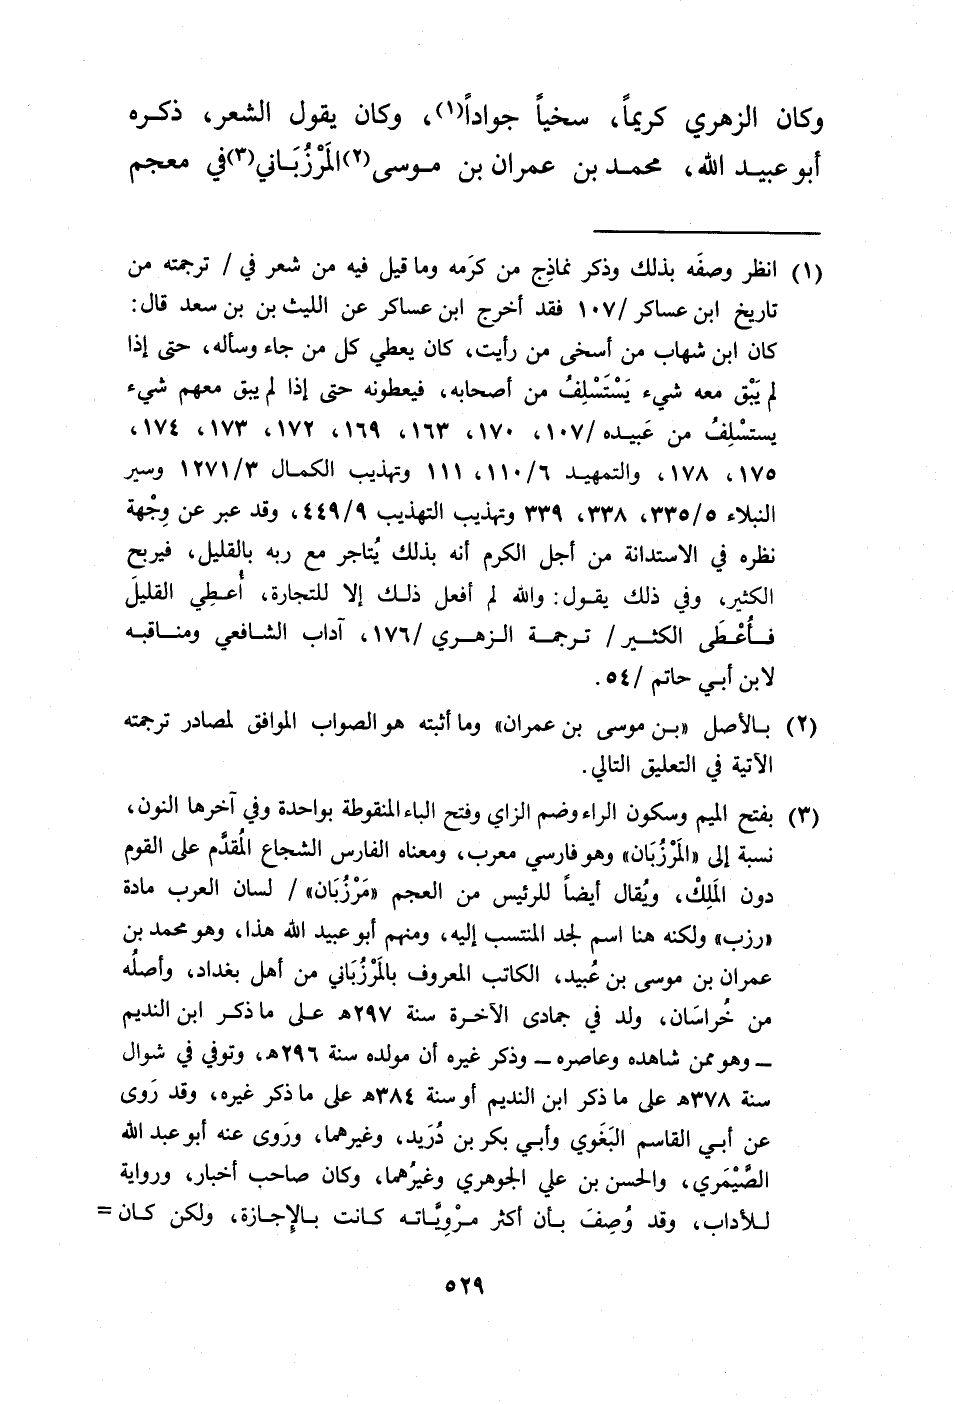 وكان الزهري كريماً، سخياً جواداً(١)، وكان يقول الشعر، ذكره
أبو عبيد الله، محمد بن عمران بن موسى(٢)المَرْزُبَاني(٣)في معجم
(١) انظر وصفَه بذلك وذكر نماذِج من كرَمه وما قيل فيه من شعر في / ترجمته من
تاريخ ابن عساكر /١٠٧ فقد أخرج ابن عساكر عن الليث بن بن سعد قال:
كان ابن شهاب من أسخى من رأيت، كان يعطي كل من جاء وسأله، حتى إذا
لم يَبْق معه شيء يَسْتَسْلِفُ من أصحابه، فيعطونه حتى إذا لم يبق معهم شيء
يستسْلِفُ من عَبيده /١٠٧، ١٧٠، ١٦٣، ١٦٩، ١٧٢، ١٧٣، ١٧٤،
١٧٥، ١٧٨، والتمهيد ١١٠/٦، ١١١ وتهذيب الكمال ١٢٧١/٣ وسير
النبلاء ٣٣٥/٥، ٣٣٨، ٣٣٩ وتهذيب التهذيب ٤٤٩/٩، وقد عبر عن وِجْهة
نظره في الاستدانة من أجل الكرم أنه بذلك يُتاجر مع ربه بالقليل، فيربح
الكثير، وفي ذلك يقول: والله لم أفعل ذلك إلا للتجارة، أُعطِي القليلَ
فأُعْطَى الكثير / ترجمة الزهري /١٧٦، آداب الشافعي ومناقبه
لابن أبي حاتم /٥٤.
(٢) بالأصل «بن موسى بن عمران» وما أثبته هو الصواب الموافق لمصادر ترجمته
الآتية في التعليق التالي.
(٣) بفتح الميم وسكون الراء وضم الزاي وفتح الباء المنقوطة بواحدة وفي آخرها النون،
نسبة إلى «المَرْزُبَان» وهو فارسي معرب، ومعناه الفارس الشجاع المُقدَّم على القوم
دون المَلِكْ، ويُقال أيضاً للرئيس من العجم «مَرْزُبَان» / لسان العرب مادة
«رزب» ولكنه هنا اسم لجد المنتسب إليه، ومنهم أبو عبيد الله هذا، وهو محمد بن
عمران بن موسى بن عُبيد، الكاتب المعروف بالمَرْزُبَاني من أهل بغداد، وأصلُه
من خُراسَان، ولد في جمادى الآخرة سنة ٢٩٧هـ على ما ذكر ابن النديم
ـ وهو ممن شاهده وعاصره ـ وذكر غيره أن مولده سنة ٢٩٦هـ، وتوفي في شوال
سنة ٣٧٨هـ على ما ذكر ابن النديم أو سنة ٣٨٤هـ على ما ذكر غيره، وقد رَوى
عن أبي القاسم البَغَوي وأبي بكر بن دُرَيد، وغيرهما، ورَوى عنه أبو عبد الله
الصَّيْمَري، والحسن بن علي الجوهري وغيرُهما، وكان صاحب أخبار، ورواية
للأداب، وقد وُصِفَ بأن أكثر مرْوِيَّاته كانت بالإِجازة، ولكن كان =
٥٢٩